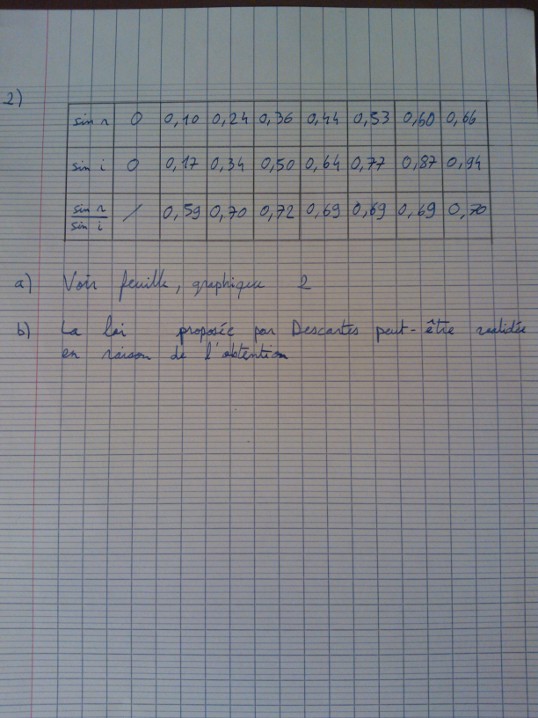 2)
sin r 0 0,10 0,24 0,36 0,44 0,53 0,60 0,66
sin i 0 0,17 0,34 0,50 0,64 0,77 0,87 0,94
sin r / sin i / 0,59 0,70 0,72 0,69 0,69 0,69 0,70
a) Voir feuille, graphique 2
b) La loi proposée par Descartes peut-être validée
en raison de l'obtention